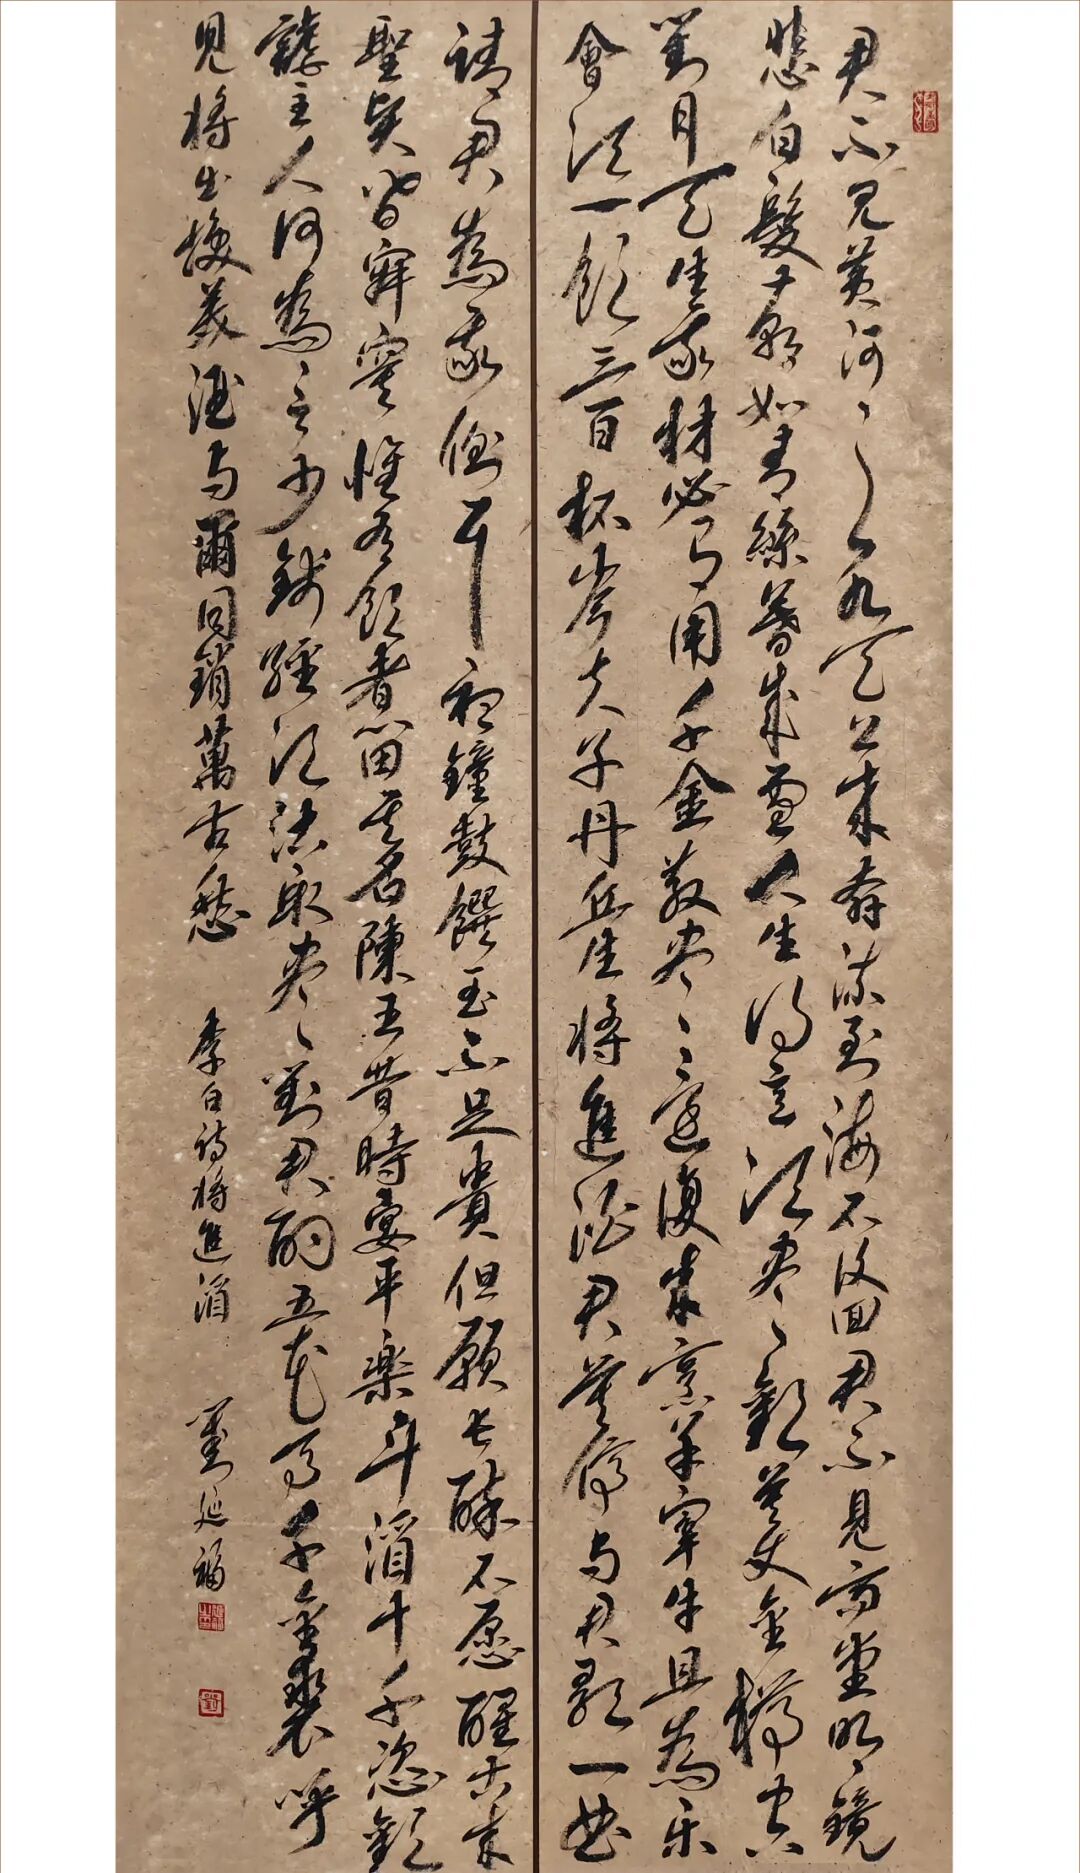 君不见黄河之水天上来奔流到海不復回君不見高堂明鏡
悲白髮朝如青絲暮成雪人生得意須盡歡莫使金樽空
對月天生我材必有用千金散盡還復来烹羊宰牛且為樂
會須一飲三百杯岑夫子丹丘生將進酒君莫停與君歌一曲
請君為我側耳聽鐘鼓饌玉不足貴但願長醉不愿醒古来
聖賢皆寂寞惟有飲者留其名陳王昔時宴平樂斗酒十千恣歡
謔主人何為言少錢徑須沽取盡對君酌五花馬千金裘呼
兒將出换美酒與爾同銷萬古愁 李白詩將進酒 劉延福